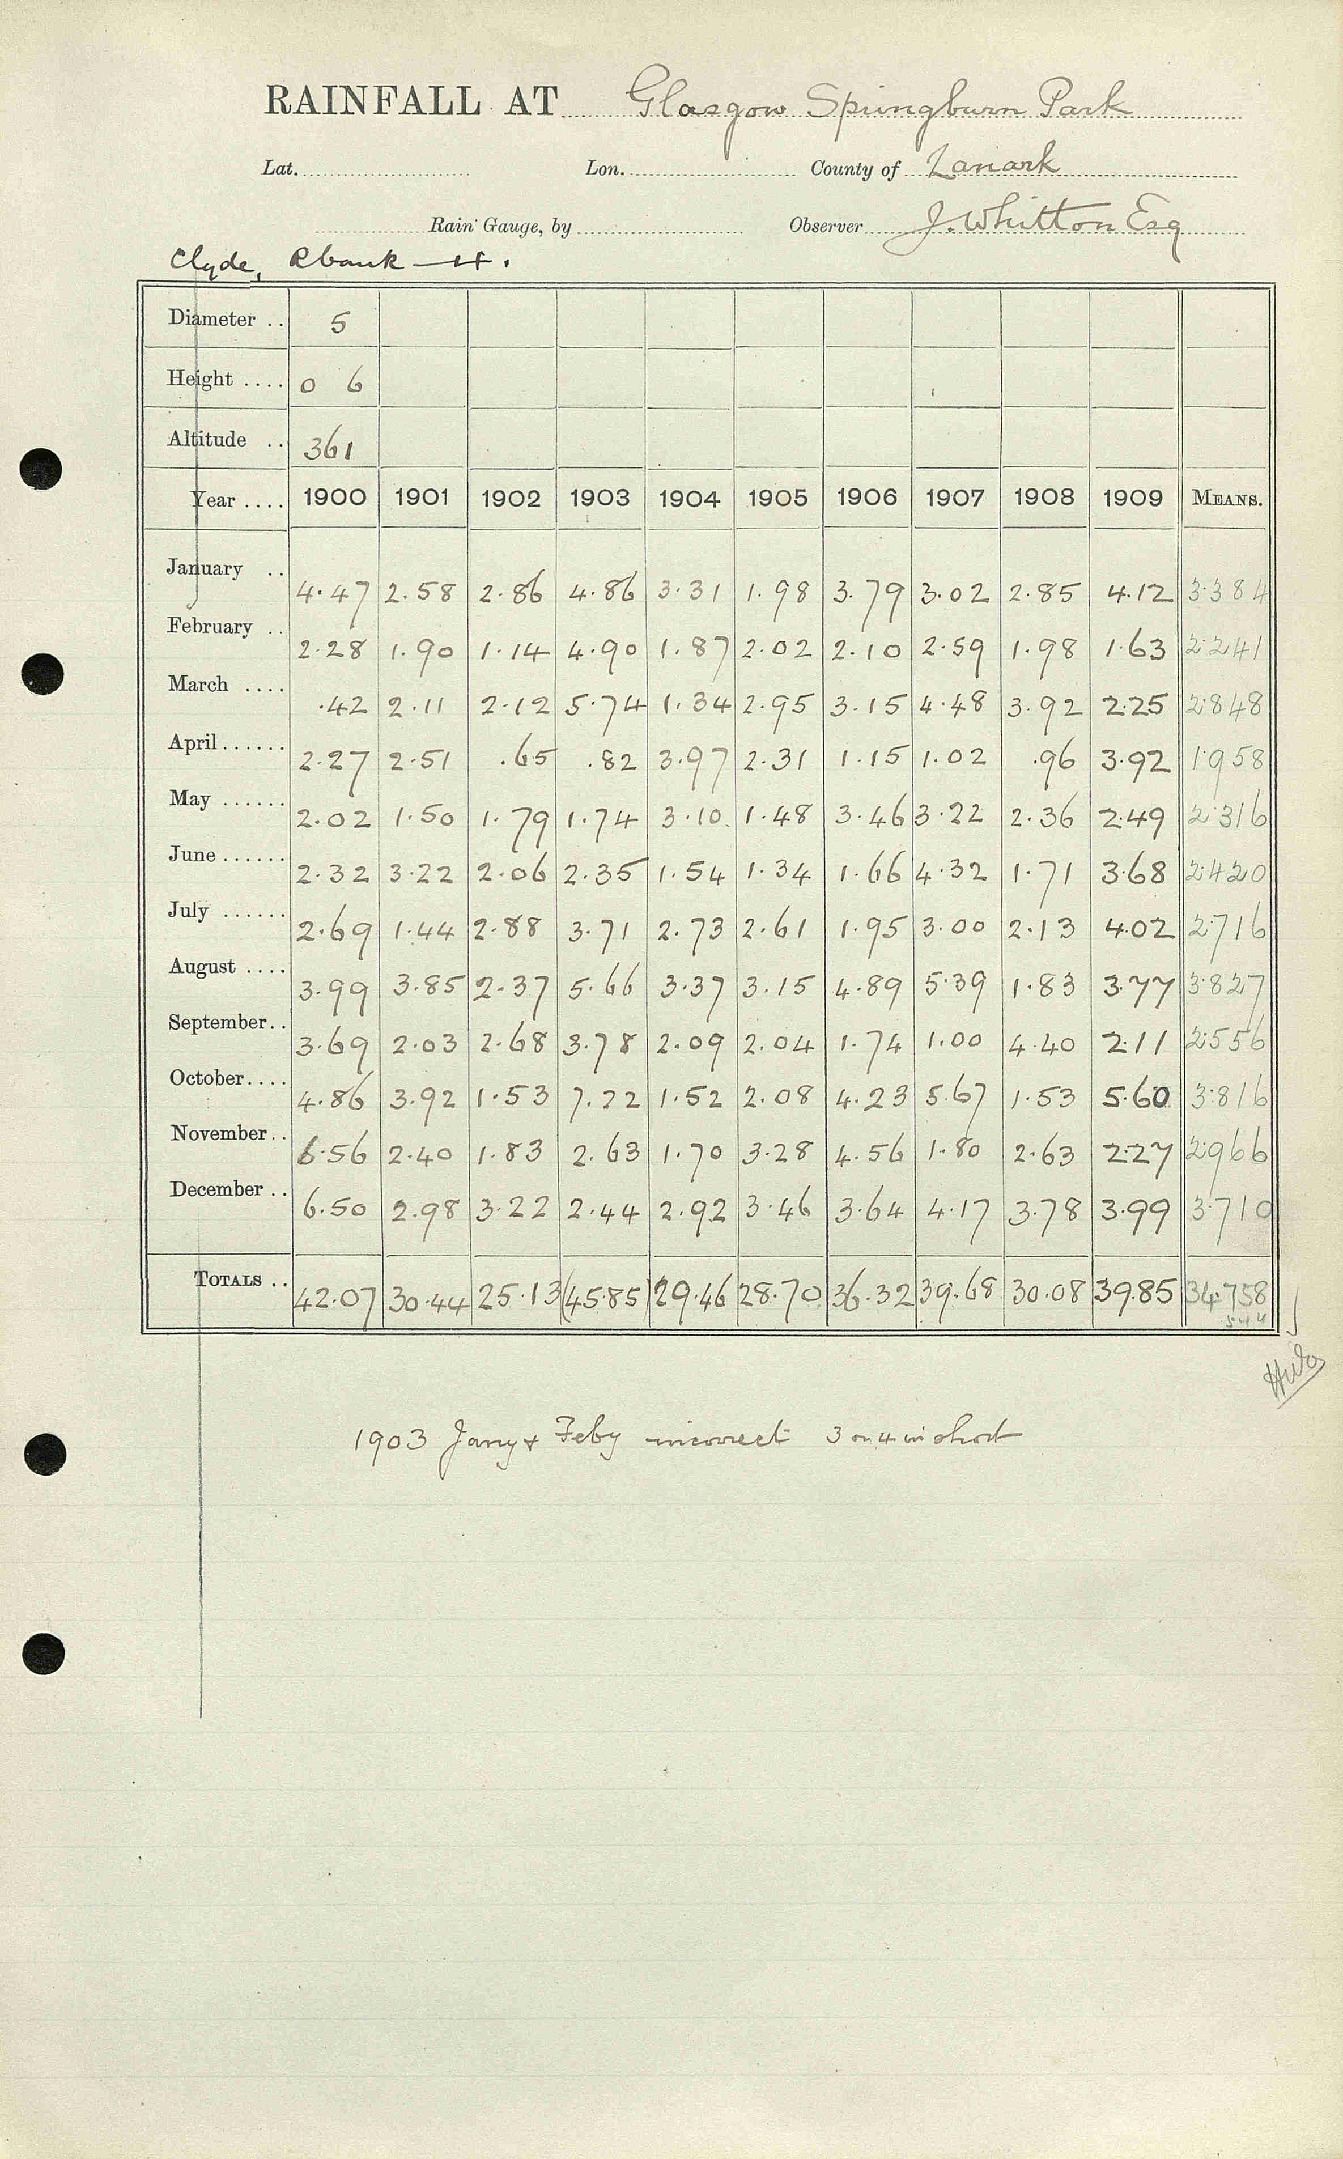 RAINFALL AT Glasgow Springburn Park
Lat. Lon. County of Lanark
Rain Gauge, by Observer J. Whitton Esq
Clyde, Rbank
Diameter .. 5
Height .... 0 6
Altitude .. 361
Year .... 1900 1901 1902 1903 1904 1905 1906 1907 1908 1909 MEANS.
January .. 4.47 2.58 2.86 4.86 3.31 1.98 3.79 3.02 2.85 4.12 3.384
February .. 2.28 1.90 1.14 4.90 1.87 2.02 2.10 2.59 1.98 1.63 2.241
March .... .42 2.11 2.12 5.74 1.34 2.95 3.15 4.48 3.92 2.25 2.848
April ...... 2.27 2.51 .65 .82 3.97 2.31 1.15 1.02 .96 3.92 1.958
May ...... 2.02 1.50 1.79 1.74 3.10 1.48 3.46 3.22 2.36 2.49 2.316
June ...... 2.32 3.22 2.06 2.35 1.54 1.34 1.66 4.32 1.71 3.68 2.420
July ...... 2.69 1.44 2.88 3.71 2.73 2.61 1.95 3.00 2.13 4.02 2.716
August .... 3.99 3.85 2.37 5.66 3.37 3.15 4.89 5.39 1.83 3.77 3.827
September.. 3.69 2.03 2.68 3.78 2.09 2.04 1.74 1.00 4.40 2.11 2.556
October.... 4.86 3.92 1.53 7.22 1.52 2.08 4.23 5.67 1.53 5.60 3.816
November.. 6.56 2.40 1.83 2.63 1.70 3.28 4.56 1.80 2.63 2.27 2.966
December .. 6.50 2.98 3.22 2.44 2.92 3.46 3.64 4.17 3.78 3.99 3.710
TOTALS .. 42.07 30.44 25.13 (45.85) 29.46 28.70 36.32 39.68 30.08 39.85 34.758
544
1903 Jany & Feby incorrect 3 or 4 in short